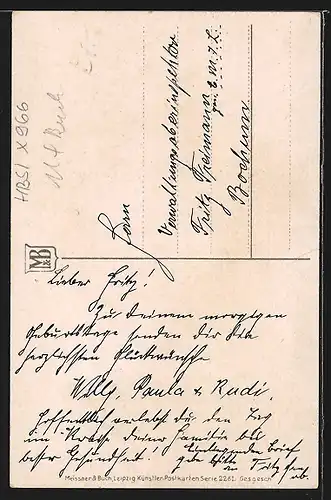 HBSI X966
M & Buch
Herrn
Verwaltungsoberinspektor
Fritz
Bochum
M&B
Lieber Fritz!
Zu Deinem morgigen
Geburtstage senden dir die
herzlichsten Glückwünsche
Willy, Paula & Rudi.
Hoffentlich verlebst du den Tag
im Kreise deiner Familie bei
bester Gesundheit!
Brief
Fritz
ab.
Meissner & Buch, Leipzig Künstler-Postkarten Serie 2281. Ges. gesch.